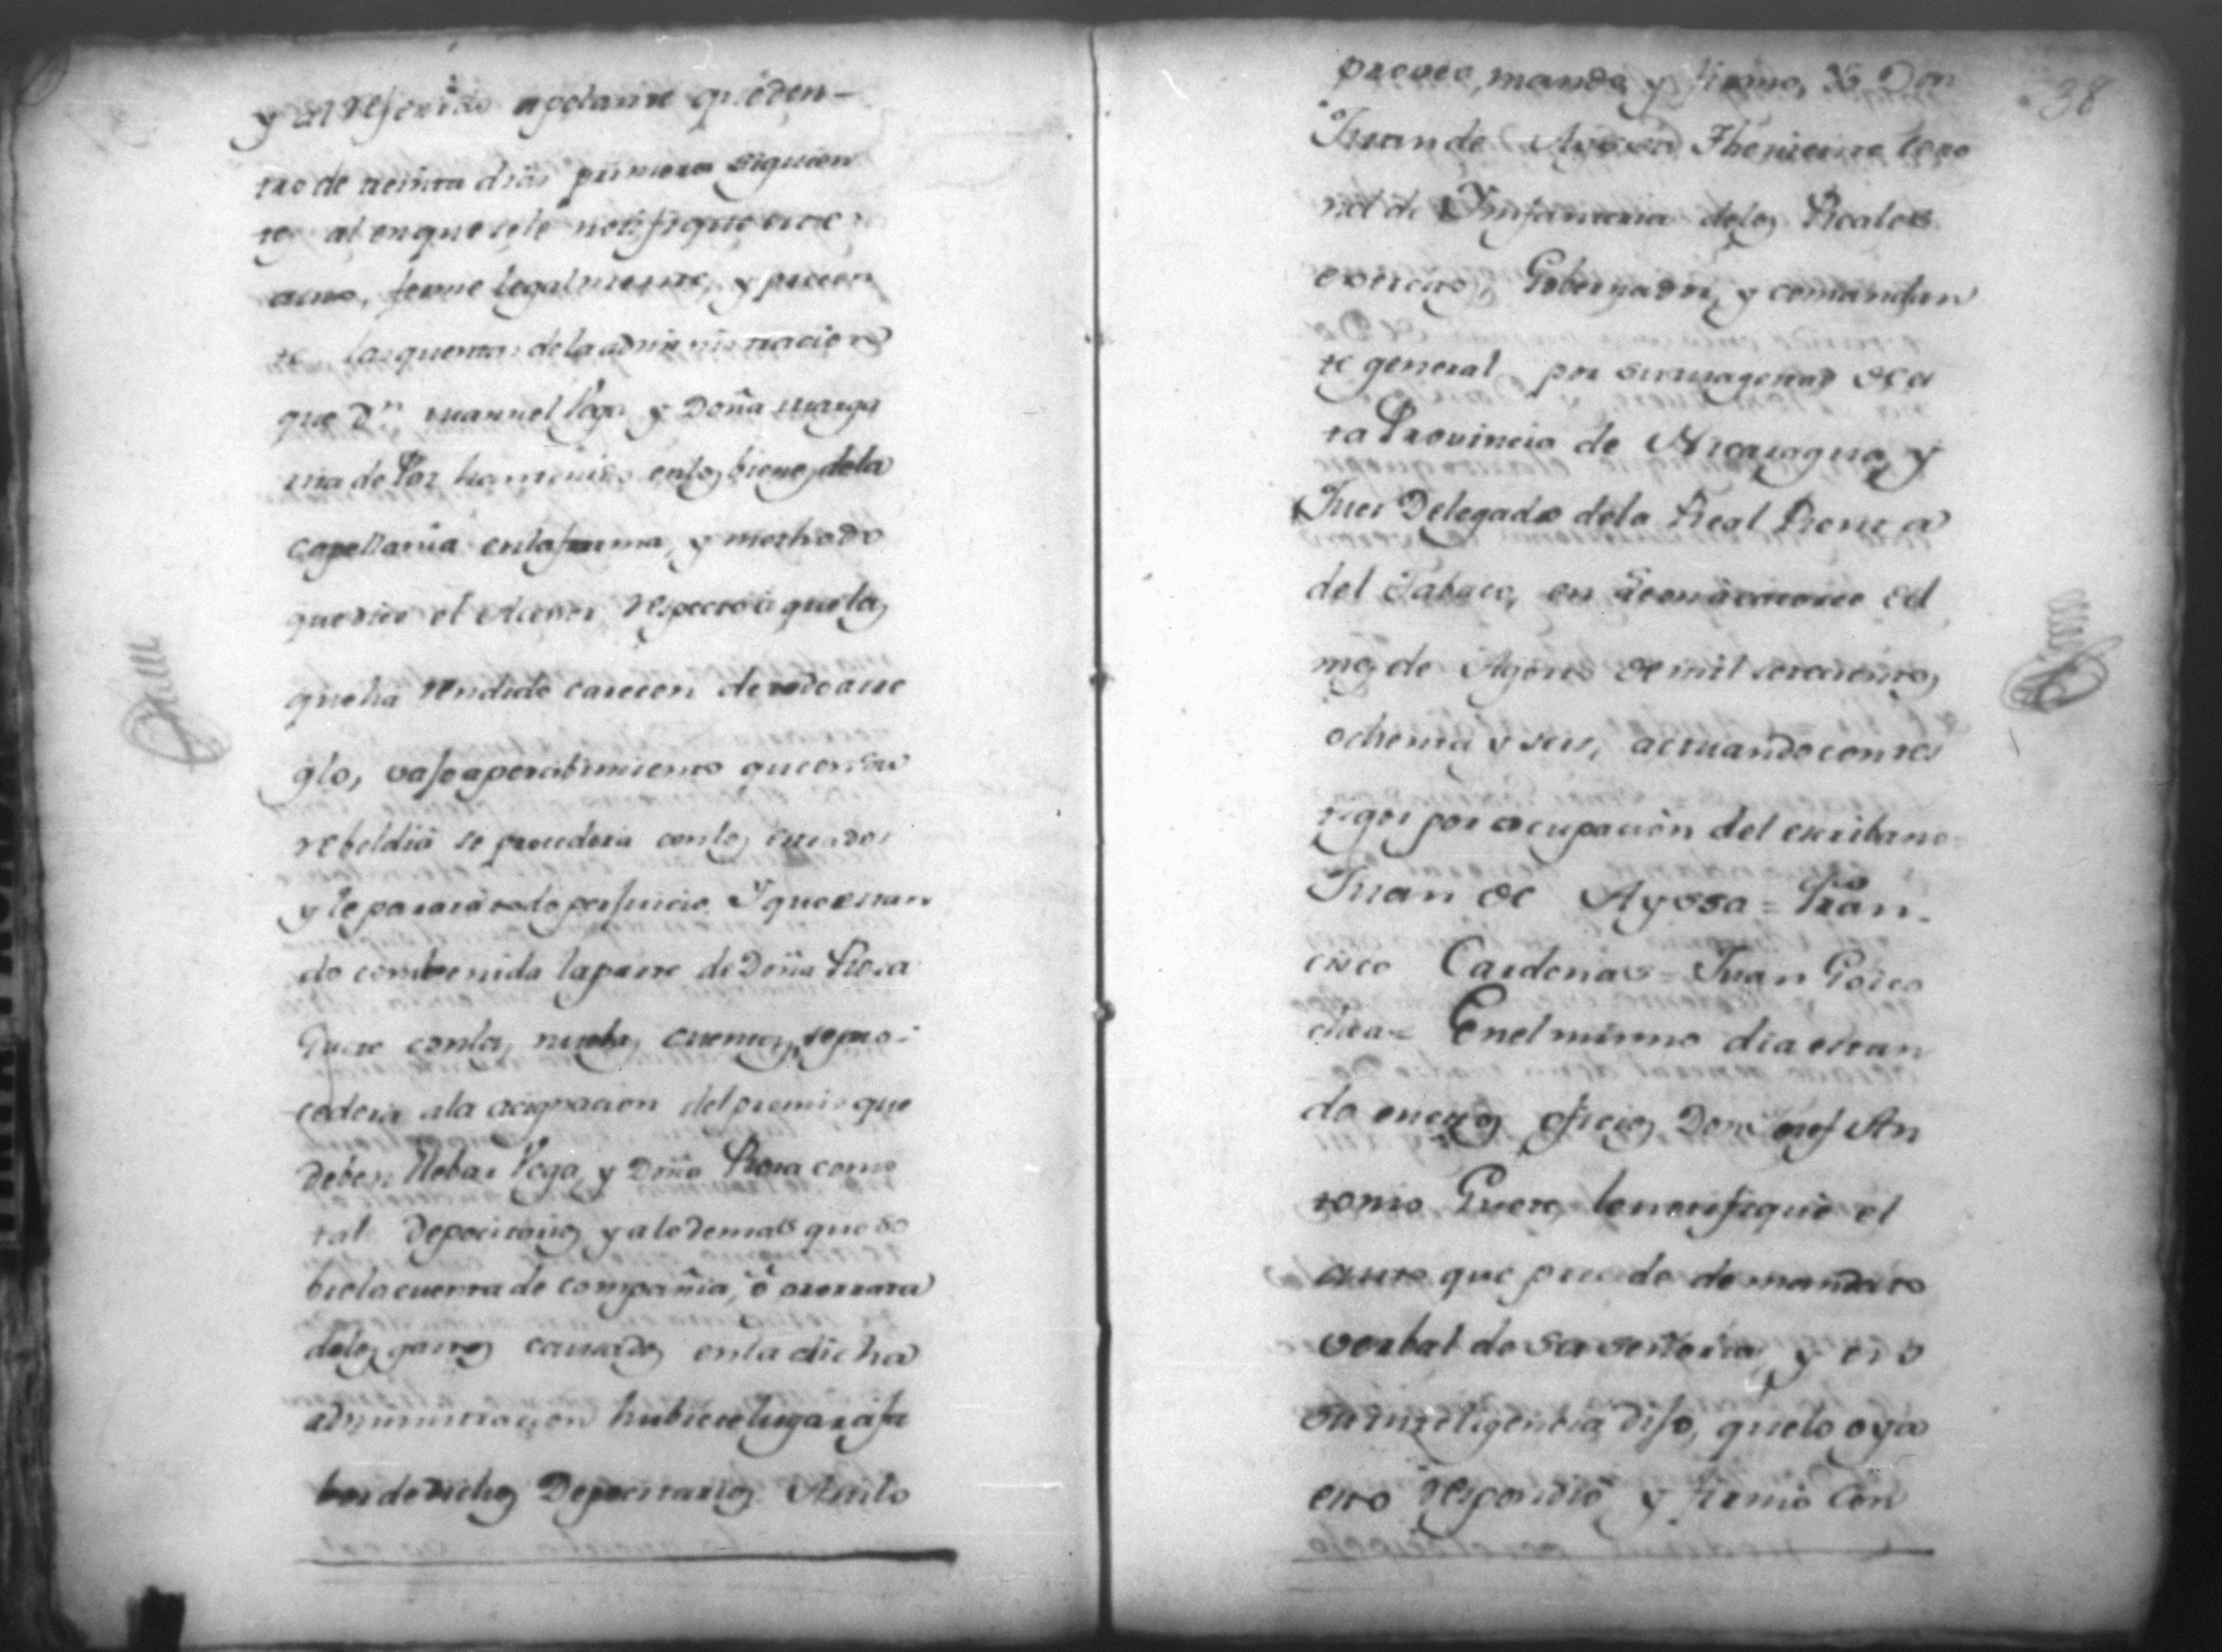 y al referido apelante qe. den-
tro de treinta dias primeros siguien
tes al en que se le notifique este
auto, forme legalmente, y presen
te las quentas de la administracion
que Dn. Manuel Vega y Doña Marga
rita de Paz han tenido en los bienes de la
capellania en la forma, y methodo
que dice el Acesor respecto à que las
que ha rendido carecen de todo arre
glo, vajo apercibimiento que en su
rebeldia se procederia con los estrados
y le pararà todo perjuicio. Y que estan
do combenida la parte de Doña Rosa
con las nuebas cuentas, se pro-
cederia a la acignacion del premio que
deben llebar Vega, y Doña Rosa como
tal Depocitarios y a lo demas que so
bre la cuenta de compañia, ò prorrata
de los gastos causados en la dicha
administracion hubiese lugar à fa
bor de dichos Depocitarios. Asi lo
proveo, mando, y firmo, Yo Don
Juan de Ayssa Theniente Coro
nel de Ynfanteria de los Reales
exercitos, Gobernador, y comandan
te general por su magestad de es
ta Provincia de Nicaragua, y
Juez Delegado de la Real Renta
del Tabaco, en del
mes de Agosto de mil setecientos
ochenta y seis, actuando con tes
tigos por ocupacion del escribano=
Juan de Ayssa= Fran-
cisco Cardenas= Juan Goico
chea= En el mismo dia estan
do en estos oficios Don Josef An
tonio le notifiquè el
auto que precede de mandato
verbal de su señoria, y en
su inteligencia dijo, que lo oya
esto respondiò y firmò con
38